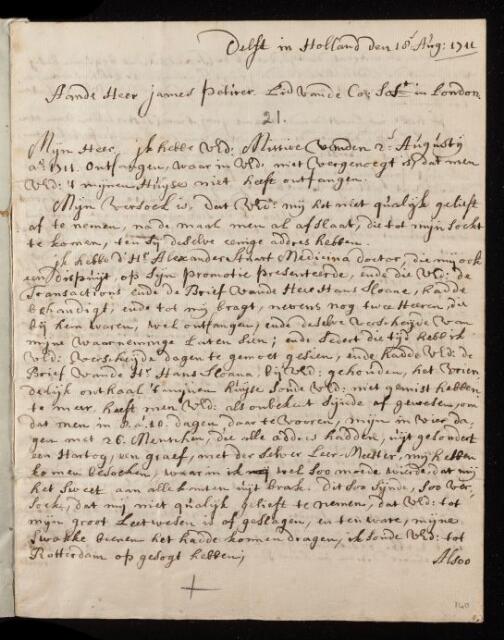 Delft in Holland den 18.t Aug: 1711
Aande Heer James Petiver. Lid vande Co: Sos.t in London.
21.
Mijn Heer, ik hebbe Uld: Missive vanden 2.e Augustij
a.o 1711. Ontfangen, waar in Uld: niet vergenoegt is, dat men
Uld: 't mijnen Huijse niet heeft ontfangen.
Mijn versoek is, dat Uld: mij het niet qualijk gelieft
af te nemen, na de maal men al afslaat, die tot mijn soekt
te komen, ten sij deselve eenige addres hebben.
ik hebbe d'Hr. Alexander Stuart Medicina doctor, die mij ook
een dispuijt, op sijn promotie presenteerde, ende die Uld: de
Transactions ende de Brief vande Heer Hans Sloane, hadde
behandigt, ende tot mij bragt, nevens nog twee Heeren, die
bij hem waren, wel ontfangen, ende deselve verscheijde van
mijne waarneminge laten sien; ende sedert die tijd heb ik
Uld: verscheijde dagen te gemoet gesien, ende hadde Uld: de
Brief vande Hr. Hans Sloane, bij Uld: gehouden, het vrien
delijk onthaal t'mijnen huijse soude Uld: niet gemist hebben,
te meer, heeft men Uld: als onbekent sijnde af gewesen, om
dat men in 8. a 10. dagen, daar te vooren, mijn in vier da,
gen met 26. Menschen, die alle addres hadden, uijt gesondert
een Hartog, een graef, met der selver Leer-Meester, mij hebben
komen besoeken, waar in ik wel soo moede wierde, dat mij
het sweet aan alle kanten uijt brak. Dit soo sijnde, soo ver
soek, dat mij niet qualijk gelieft te nemen, dat Uld: tot
mijn groot Leetwesen is af geslagen, en ten ware, mijne
swakke beenen het hadde konnen dragen, ik soude Uld: tot
Rotterdam op gesogt hebben;
Alsoo
140